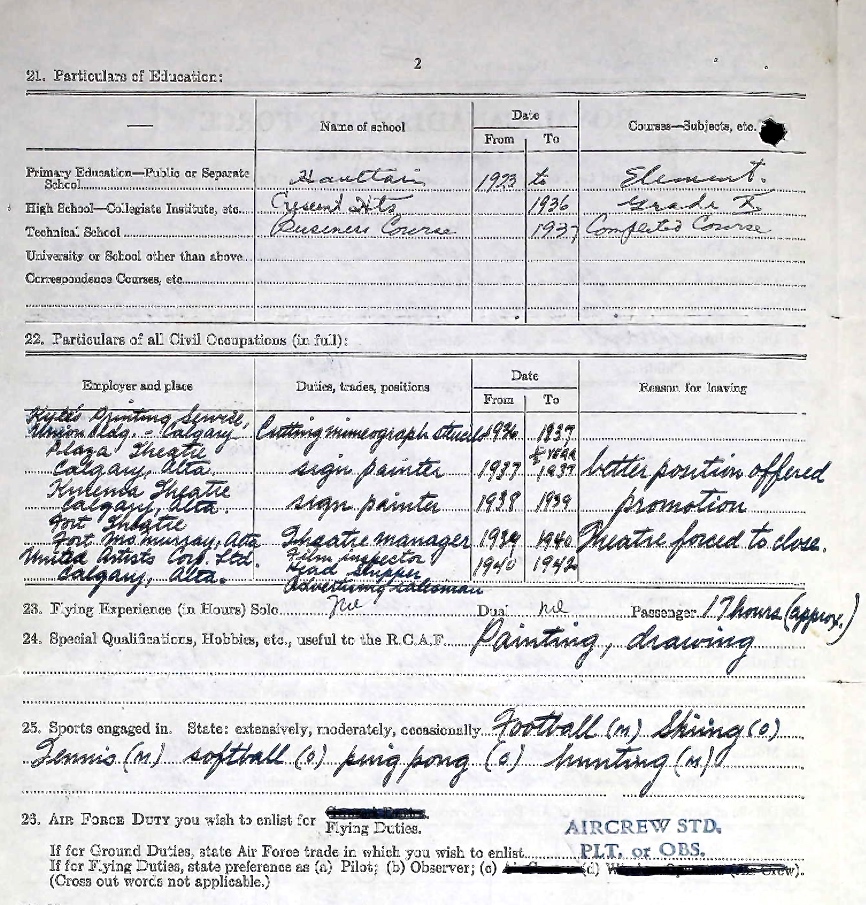 2
21. Particulars of Education:
— Name of school Date From To Courses—Subjects, etc.
Primary Education—Public or Separate
School Haultain 1923 to Element.
High School—Collegiate Institute, etc. Crescent Hts 1936 Grade X
Technical School Business Course 1937 Completed Course
University or School other than above
Correspondence Courses, etc.
22. Particulars of all Civil Occupations (in full):
Employer and place Duties, trades, positions Date From To Reason for leaving
Printing Service,
Union Bldg. - Calgary Cutting mimeograph 1936 1937
Plaza Theatre ½ YEAR
Calgary, Alta. sign painter 1937 1937 better position offered
Kinema Theatre
Calgary, Alta. sign painter 1938 1939 promotion
Fort Theatre
Fort McMurray, Alta Theatre manager 1939 1940 Theatre forced to close.
United Artists Corp. Ltd. Film inspector 1940 1942
Calgary, Alta. Head Shipper
Advertising salesman
23. Flying Experience (in Hours) Solo nil Dual nil Passenger 17 hours (approx.)
24. Special Qualifications, Hobbies, etc., useful to the R.C.A.F. Painting, drawing
25. Sports engaged in. State: extensively, moderately, occasionally Football (M) Skiing (O)
Tennis (M) softball (O) ping pong (O) hunting (M)
26. AIR FORCE DUTY you wish to enlist for
Flying Duties.
AIRCREW STD.
If for Ground Duties, state Air Force trade in which you wish to enlist PLT. or OBS.
If for Flying Duties, state preference as (a) Pilot; (b) Observer; (c) (d)
(Cross out words not applicable.)